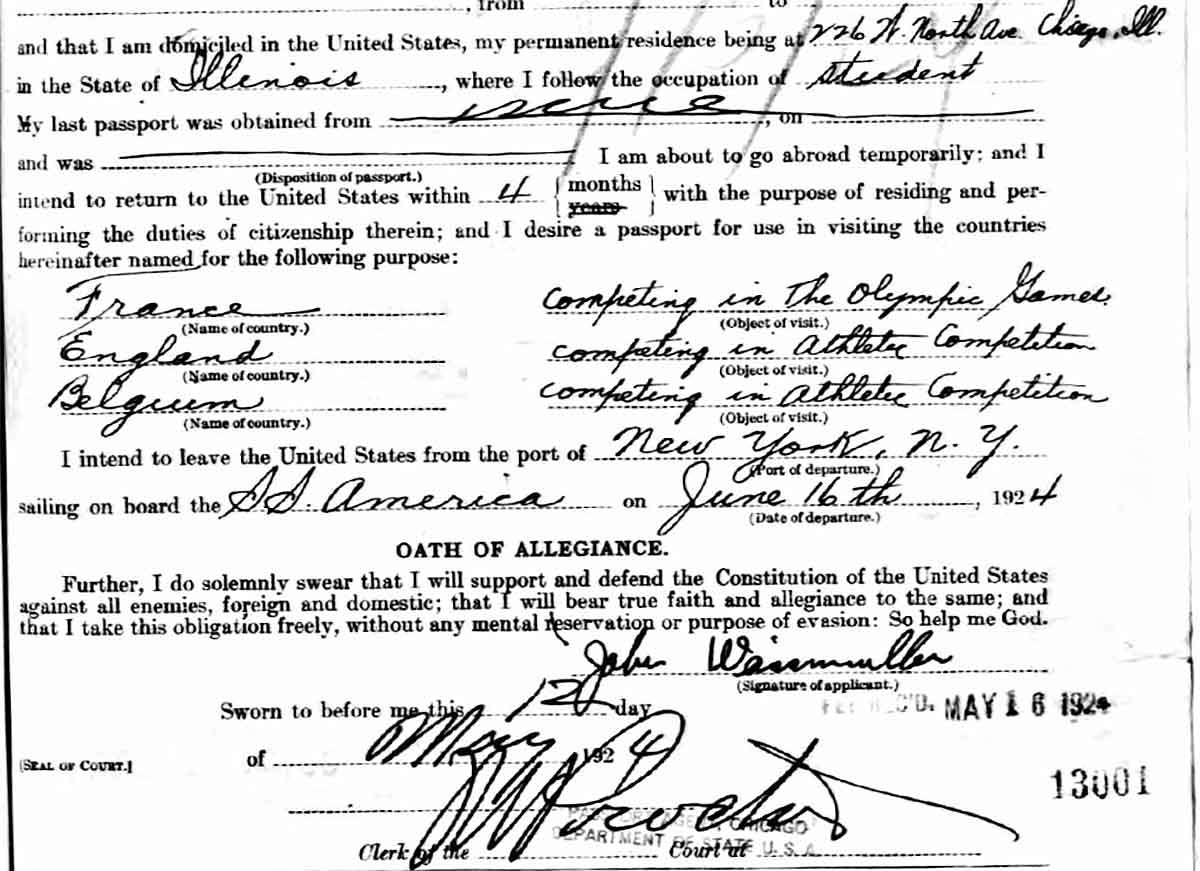 , from to
and that I am domiciled in the United States, my permanent residence being at 226 W. North Ave Chicago, Ill.
in the State of Illinois, where I follow the occupation of student
My last passport was obtained from none, on
and was I am about to go abroad temporarily; and I
(Disposition of passport.)
intend to return to the United States within 4 { months years } with the purpose of residing and per-
forming the duties of citizenship therein; and I desire a passport for use in visiting the countries
hereinafter named for the following purpose:
France competing in The Olympic Games.
(Name of country.) (Object of visit.)
England competing in Athletic Competition
(Name of country.) (Object of visit.)
Belgium competing in Athletic Competition
(Name of country.) (Object of visit.)
I intend to leave the United States from the port of New York, N. Y.
(Port of departure.)
sailing on board the SS. America on June 16th, 1924
(Date of departure.)
OATH OF ALLEGIANCE.
Further, I do solemnly swear that I will support and defend the Constitution of the United States
against all enemies, foreign and domestic; that I will bear true faith and allegiance to the same; and
that I take this obligation freely, without any mental reservation or purpose of evasion: So help me God.
John Weissmuller
(Signature of applicant.)
Sworn to before me this 12 day
REC'D. MAY 16 1924
of May 1924
[SEAL OF COURT.]
13001
PASSPORT AGENCY, CHICAGO
DEPARTMENT OF STATE U.S.A.
Clerk of the Court at